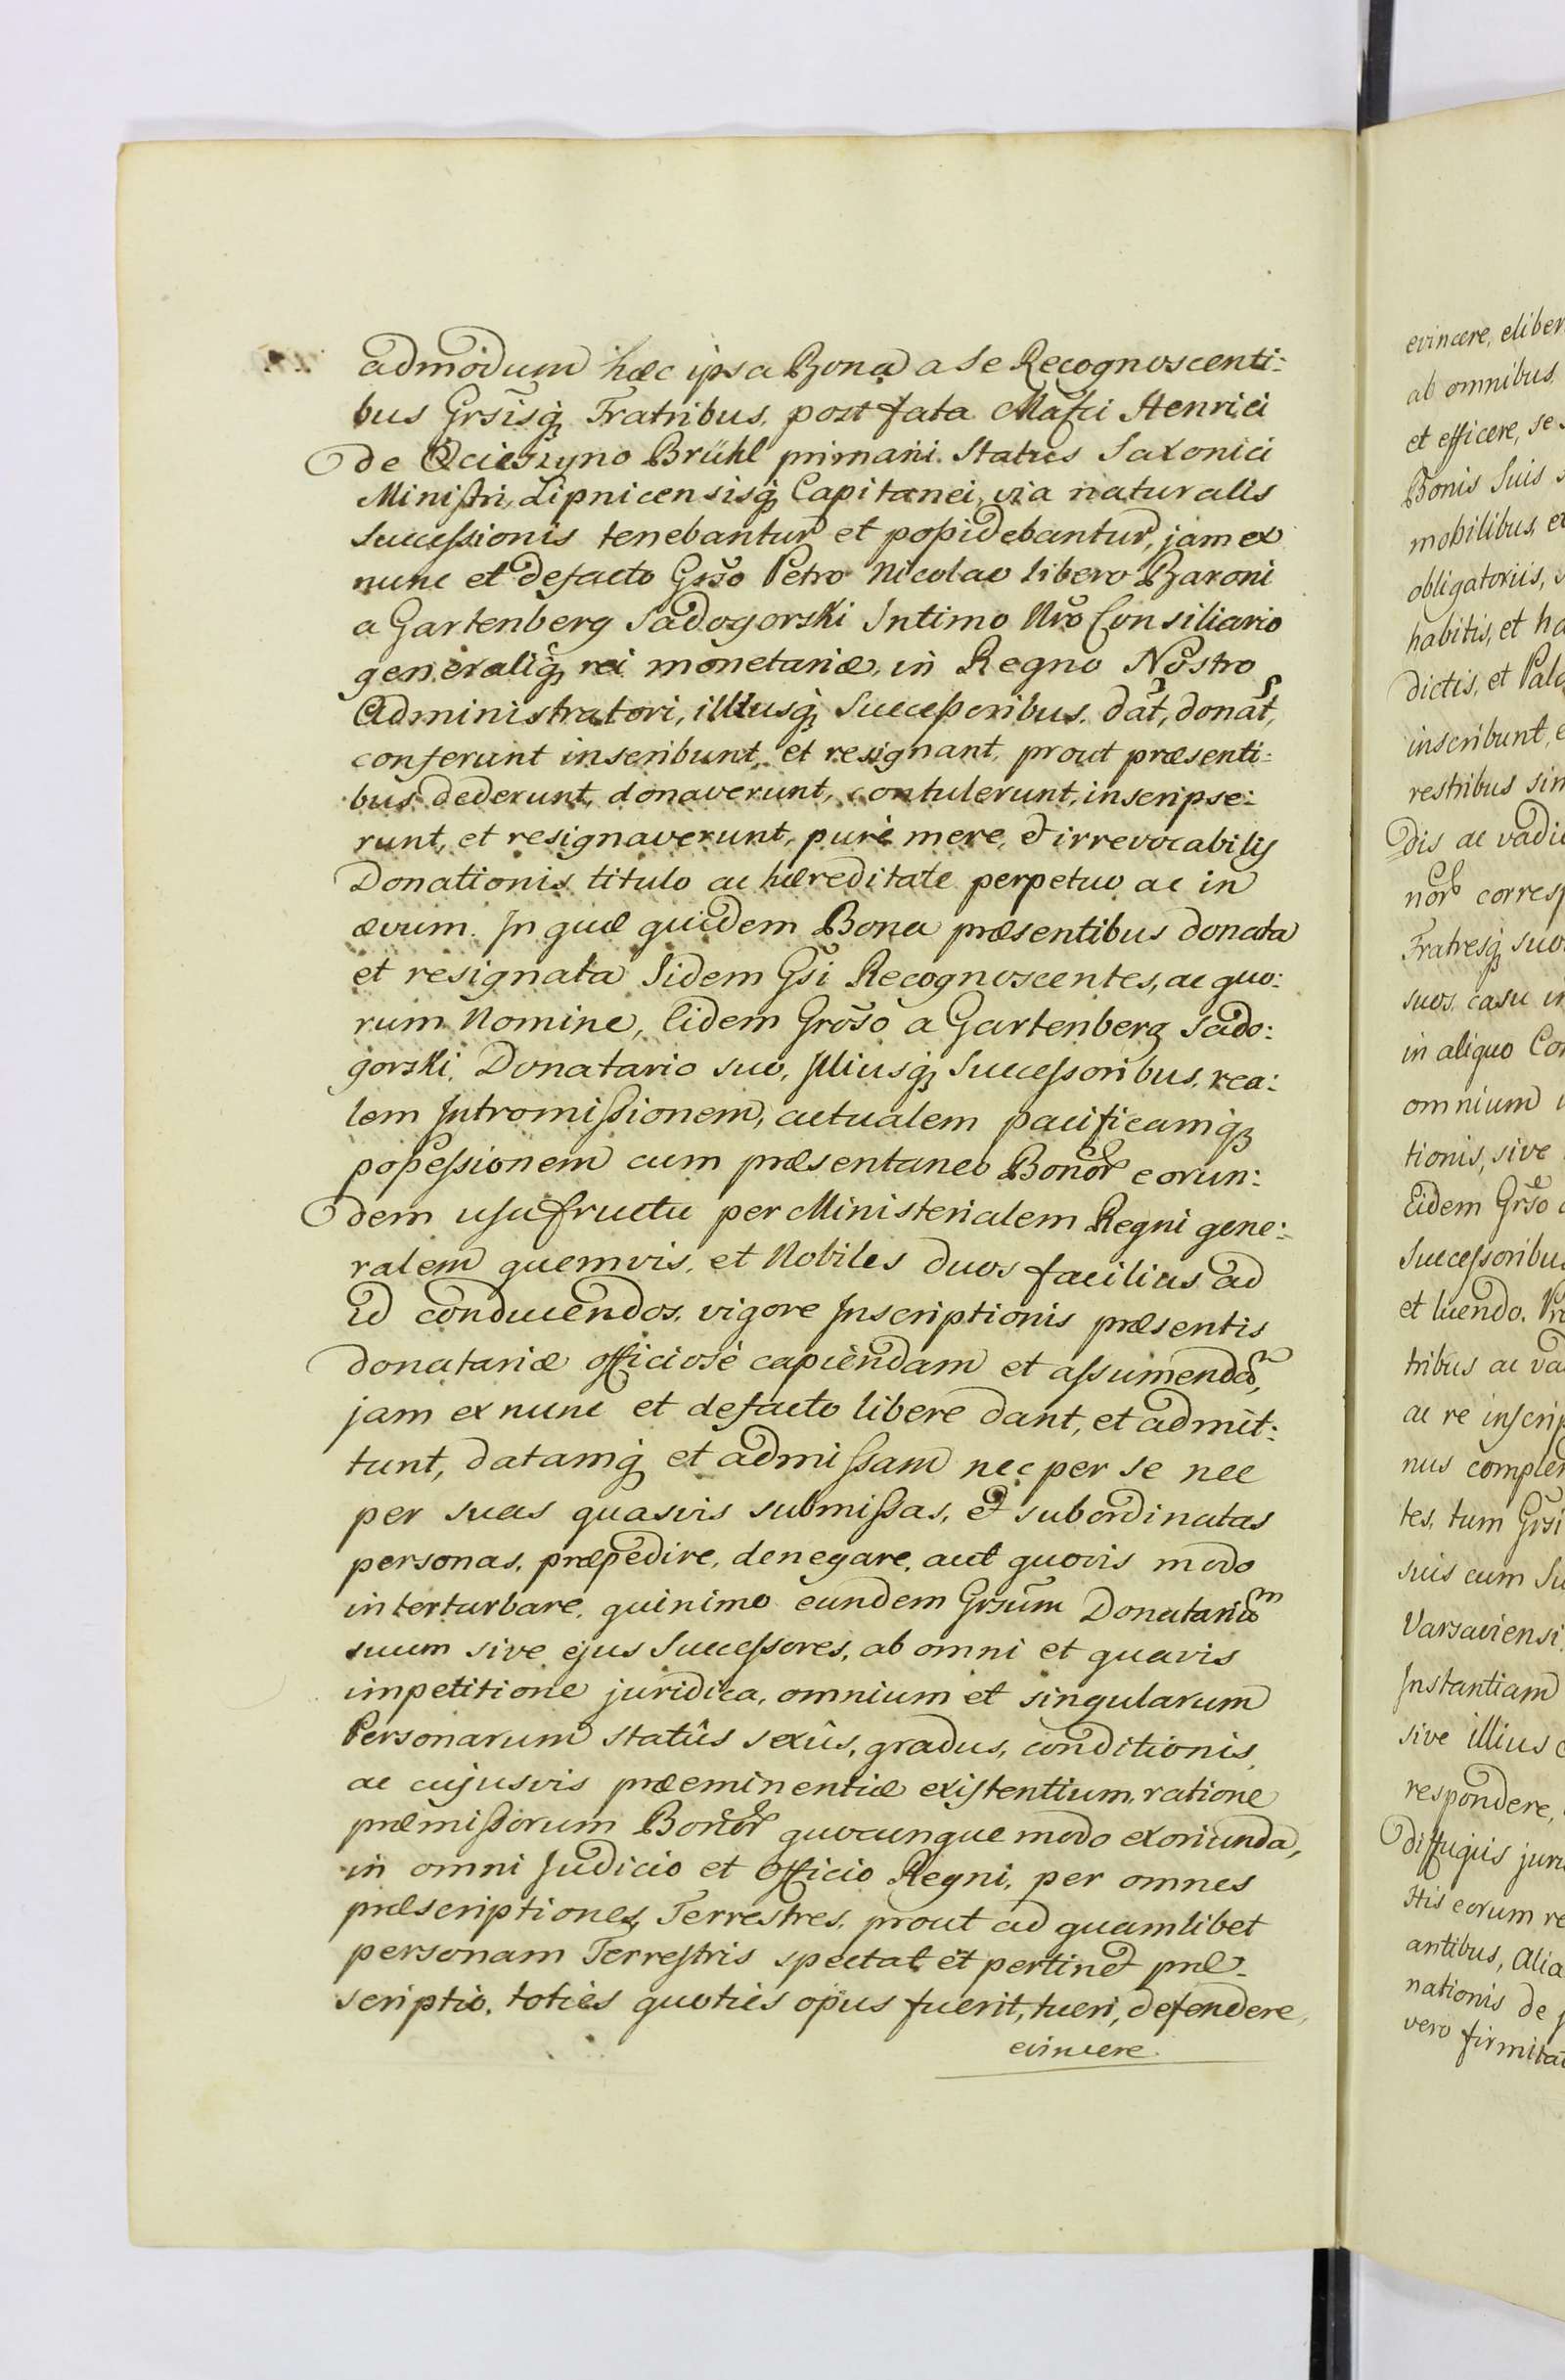 admodum hæc ipsa Bona a Se Recognoscenti:
bus Grsisq; Fratribus, post fata Mafci Henrici
de Ocieszyno Brühl primarii Status Saxonici
Ministri, Lipnicensisq; Capitanei, via naturalis
Successionis tenebantur et possidebantur, jam ex
nunc et defacto Grso Petro Nicolao libero Baroni
a Gartenberg Sadogorski Intimo Nro Consiliario
generaliq; rei monetariæ, in Regno Nostro
Administratori, illiusq; Successoribus. dat, donat,
conferunt inscribunt, et resignant, prout præsenti:
bus dederunt, donaverunt, contulerunt, inscripse:
runt, et resignaverunt, purè mere, et irrevocabilis
Donationis titulo ac hæreditate perpetuo ac in
ævum. In quæ quidem Bona præsentibus donata
et resignata Iidem Gsi Recognoscentes, ac quo:
rum Nomine, Eidem Groso a Gartenberg Sado:
gorski, Donatario suo, Illiusq; Successoribus, rea:
lem Intromissionem, actualem pacificamq;
possessionem cum præsentaneo Bonor eorun:
dem usufructu per Ministerialem Regni gene:
ralem quemvis, et Nobiles duos facilius ad
id conducendos, vigore Inscriptionis præsentis
donatariæ officiosè capiendam et assumendam,
jam ex nunc et defacto libere dant, et admit:
tunt, datamq; et admissam nec per se nec
per suas quasvis submissas, et subordinatas
personas, præpedire, denegare, aut quovis modo
interturbare, quinimo eundem Grsum Donatarium
suum sive ejus Successores, ab omni et quavis
impetitione juridica, omnium et singularum
Personarum statûs sexûs, gradus, conditionis,
ac cujusvis præeminentiæ existentium, ratione
præmissorum Bonor quocunque modo exoriunda,
in omni Judicio et Officio Regni, per omnes
præscriptiones Terrestres, prout ad quamlibet
personam Terrestris spectat et pertinet præ-
scriptio, toties quoties opus fuerit, tueri, defendere,
evincere.
evincere, eliber
ab omnibus,
et efficere, se
Bonis Suis
mobilibus, et
obligatoriis,
habitis, et ha
dictis, et Pala
inscribunt, e
restribus sim
dis ac vadi
nor corresp
Fratresq; suo
suos, casu in
in aliquo Con
omnium
tionis, sive
Eidem Grso
Successoribu
et luendo. Pr
tribus ac va
ac re inscrip
nus complen
tes, tum Grsi
suis cum Su
Varsaviensi
Instantiam
sive illius
respondere,
diffugiis juri
His eorum re
antibus, Alia
nationis de
vero firmita